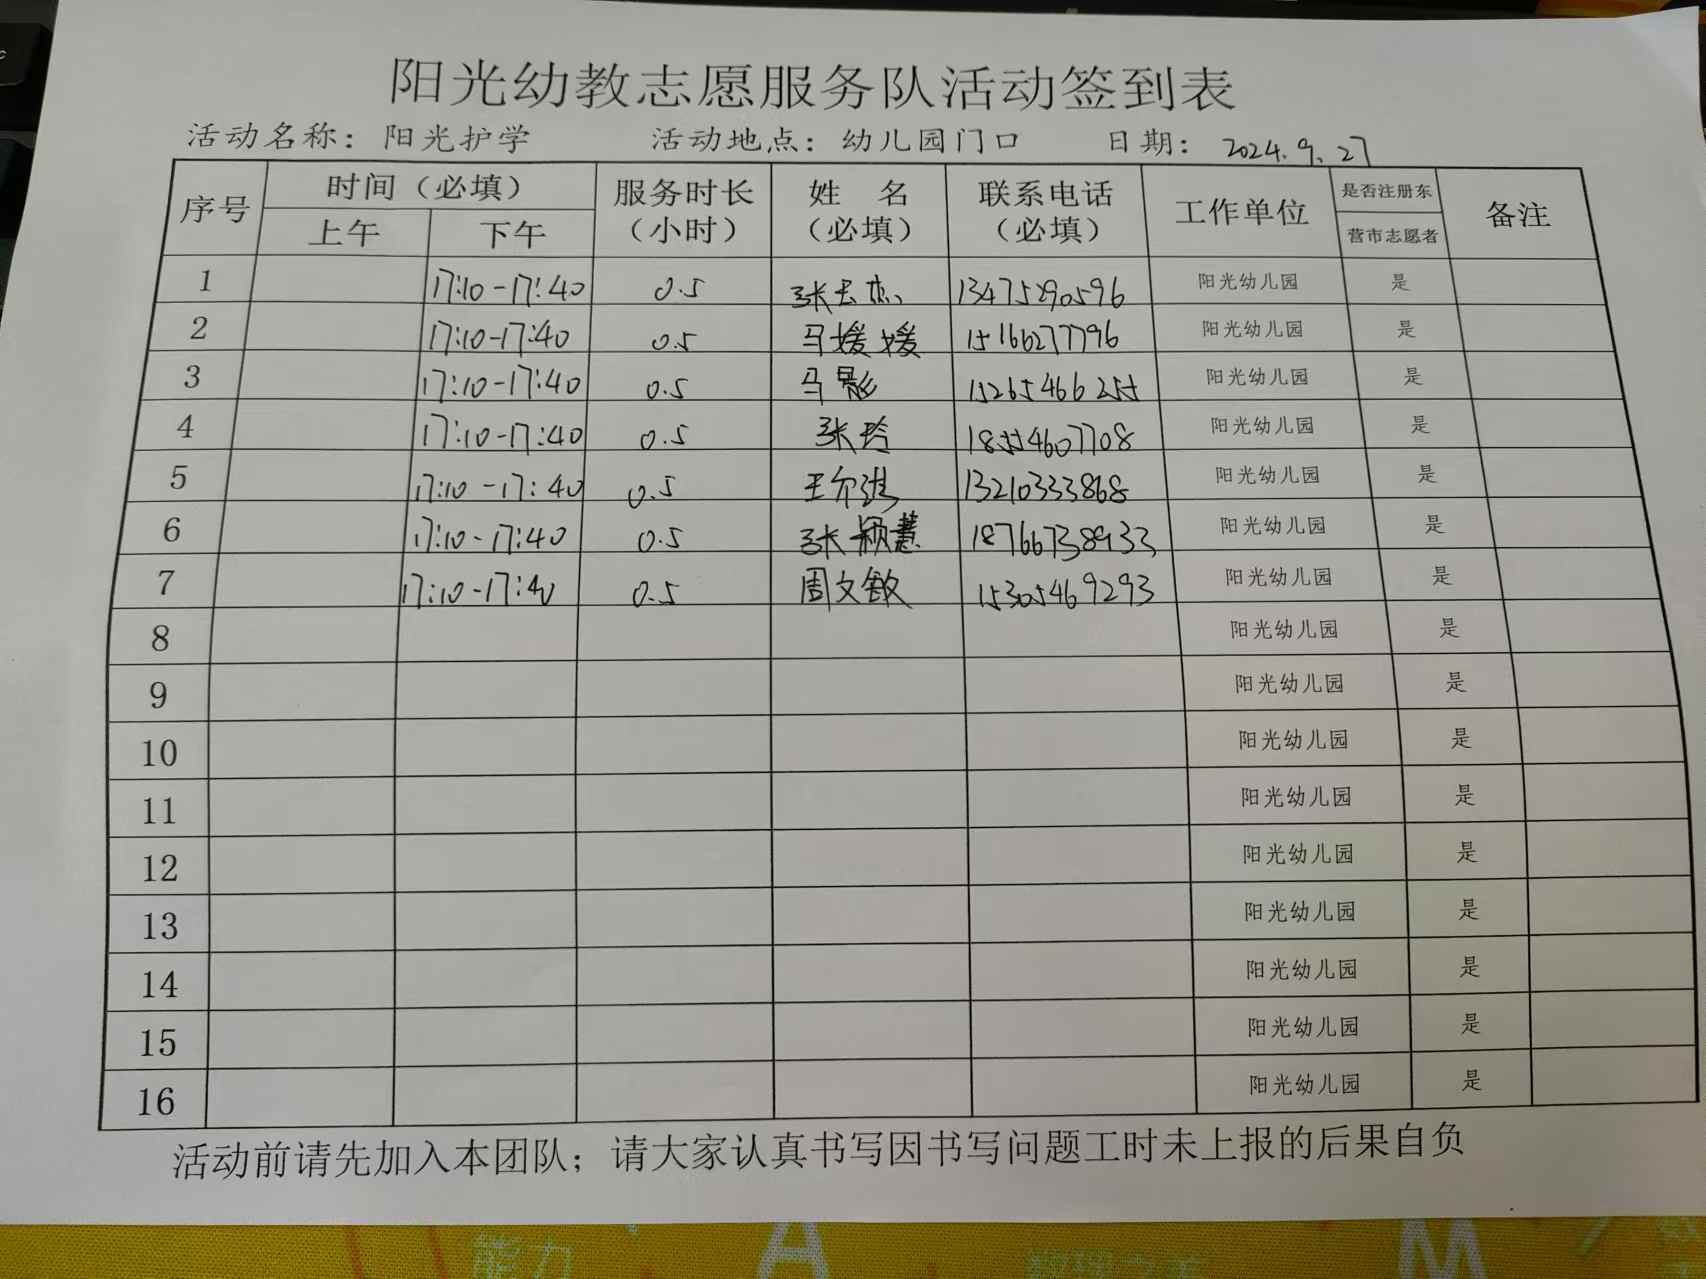 阳光幼教志愿服务队活动签到表
活动名称：阳光护学 活动地点：幼儿园门口 日期：2024.9.27
序号 时间（必填） 服务时长（小时） 姓 名（必填） 联系电话（必填） 工作单位 是否注册东营市志愿者 备注
上午 下午
1 17:10-17:40 0.5 13475290596 阳光幼儿园 是
2 17:10-17:40 0.5 马媛媛 15166277796 阳光幼儿园 是
3 17:10-17:40 0.5 马影 15265466255 阳光幼儿园 是
4 17:10-17:40 0.5 张玲 18554607708 阳光幼儿园 是
5 17:10-17:40 0.5 13210333868 阳光幼儿园 是
6 17:10-17:40 0.5 张颖慧 18766738933 阳光幼儿园 是
7 17:10-17:40 0.5 周文敏 15305469293 阳光幼儿园 是
8 阳光幼儿园 是
9 阳光幼儿园 是
10 阳光幼儿园 是
11 阳光幼儿园 是
12 阳光幼儿园 是
13 阳光幼儿园 是
14 阳光幼儿园 是
15 阳光幼儿园 是
16 阳光幼儿园 是
活动前请先加入本团队；请大家认真书写因书写问题工时未上报的后果自负
能力 A M